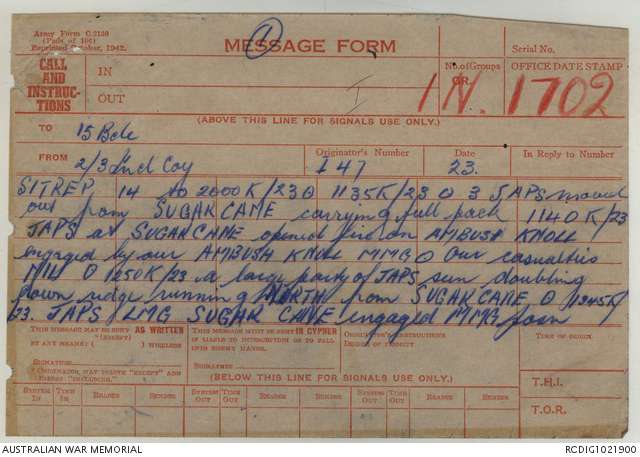 Army Form C.2138
(Pads of 100)
Reprinted October, 1942.
MESSAGE FORM
1
Serial No.
CALL AND INSTRUCTIONS
IN
OUT
No. of Groups
GR.
OFFICE DATE STAMP
IN. 1702
(ABOVE THIS LINE FOR SIGNALS USE ONLY.)
TO 15 Bde
FROM 2/3 Ind Coy
Originator's Number
147
Date
23.
In Reply to Number
SITREP 14 to 2000K/23 O 1135K/23 O 3 JAPS moved
out from SUGAR CANE carrying full pack 1140K/23
JAPS at SUGAR CANE opened fire on AMBUSH KNOLL
engaged by our AMBUSH KNOLL MMG O Our casualties
NIL O 1250K/23 a large party of JAPS seen doubling
down ridge running NORTH from SUGAR CANE O 1345K/
23. JAPS LMG SUGAR CANE engaged MMG from
THIS MESSAGE MAY BE SENT AS WRITTEN
BY ANY MEANS (EXCEPT) WIRELESS
SIGNATURE
(ORIGINATOR MAY DELETE "EXCEPT" AND
INSERT "INCLUDING."
THIS MESSAGE MUST BE SENT IN CIPHER
IF LIABLE TO INTERCEPTION OR TO FALL
INTO ENEMY HANDS.
SIGNATURE
ORIGINATOR'S INSTRUCTIONS
DEGREE OF PRIORITY
TIME OF ORIGIN
(BELOW THIS LINE FOR SIGNALS USE ONLY.)
T.H.I.
SYSTEM IN
TIME IN
READER
SENDER
SYSTEM OUT
TIME OUT
READER
SENDER
SYSTEM OUT
TIME OUT
READER
SENDER
T.O.R.
AUSTRALIAN WAR MEMORIAL
RCDIG1021900